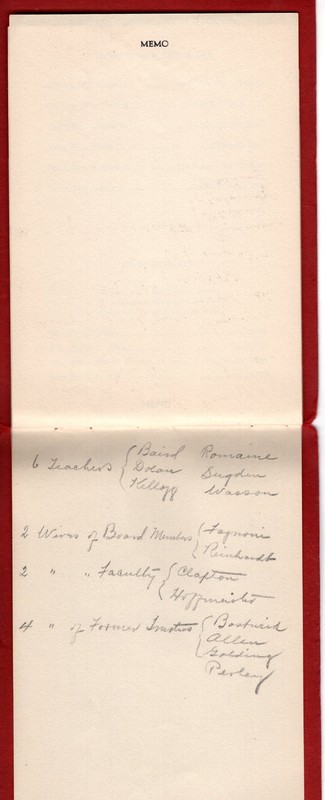 MEMO
Baird Romaine
6 Teachers { Dolan Sugden
Kellogg Wasson
2 Wives of Board Members { Fagnoni
Reinhardt
2 " " Faculty { Clapton
Hoffmeister
4 " of Former { Bostwick
Allen
Golding
Perley